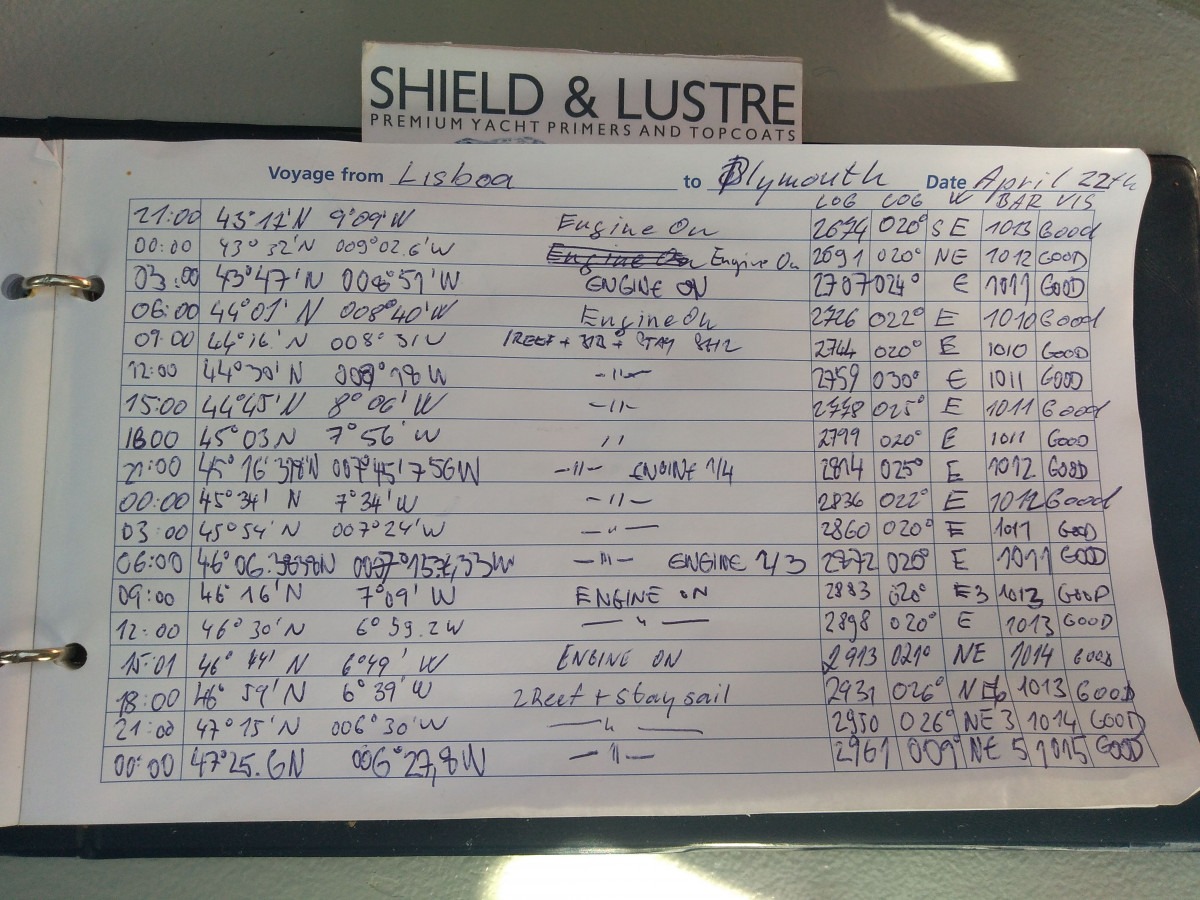 SHIELD & LUSTRE
PREMIUM YACHT PRIMERS AND TOPCOATS
Voyage from Lisboa to Plymouth Date April 22th
LOG COG W BAR VIS
21:00 43°17'N 9°09'W Engine On 2674 020° SE 1013 Good
00:00 43°32'N 009°02.6'W Engine On Engine On 2691 020° NE 1012 GOOD
03:00 43°47'N 008°51'W ENGINE ON 2707 024° E 1011 GOOD
06:00 44°01'N 008°40'W Engine On 2726 022° E 1010 Good
09:00 44°16'N 008° 1REEF + + STAY 2744 020° E 1010 GOOD
12:00 44°30'N 008°18W -11- 2759 030° E 1011 GOOD
15:00 44°45'N 8°06'W -11- 2778 025° E 1011 Good
1800 45°03N 7°56'W 11 2799 020° E 1011 GOOD
21:00 45°16'378'N 007°45'756W -11- ENGINE 1/4 2814 025° E 1012 GOOD
00:00 45°34' N 7°34'W -11- 2836 022° E 1012 Good
03:00 45°54'N 007°24'W -"- 2860 020° E 1011 GOOD
06:00 46°06. -"- ENGINE 1/3 2872 020° E 1011 GOOD
09:00 46°16'N 7°09'W ENGINE ON 2883 020° E3 1013 GOOD
12:00 46°30'N 6°59.2W -"- 2898 020° E 1013 GOOD
15:01 46°44' N 6°49' W ENGINE ON 2913 021° NE 1014 GOOD
18:00 46°59'N 6°39'W 2Reef + Stay sail 2931 026° 1013 GOOD
21:00 47°15'N 006°30'W -"- 2950 026° NE 3 1014 GOOD
00:00 47°25.6N 006°27,8W -11- 2961 009° NE 5 1015 GOOD